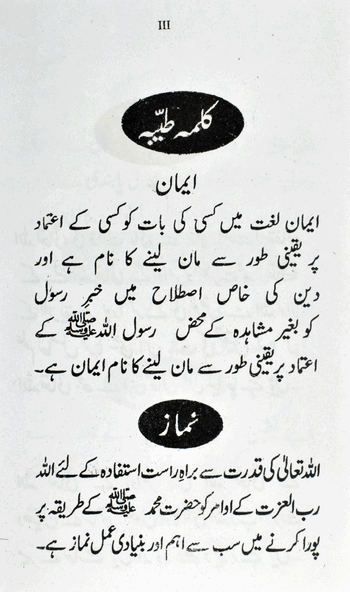 III
کلمہ طیّبہ
ایمان
ایمان لغت میں کسی کی بات کو کسی کے اعتماد
پر یقینی طور سے مان لینے کا نام ہے اور
دین کی خاص اصطلاح میں خبرِ رسول
کو بغیر مشاہدہ کے محض رسول اللہ ﷺ کے
اعتماد پر یقینی طور سے مان لینے کا نام ایمان ہے۔
نماز
اللہ تعالیٰ کی قدرت سے براہِ راست استفادہ کے لئے اللہ
رب العزت کے اوامر کو حضرت محمد ﷺ کے طریقہ پر
پورا کرنے میں سب سے اہم اور بنیادی عمل نماز ہے۔